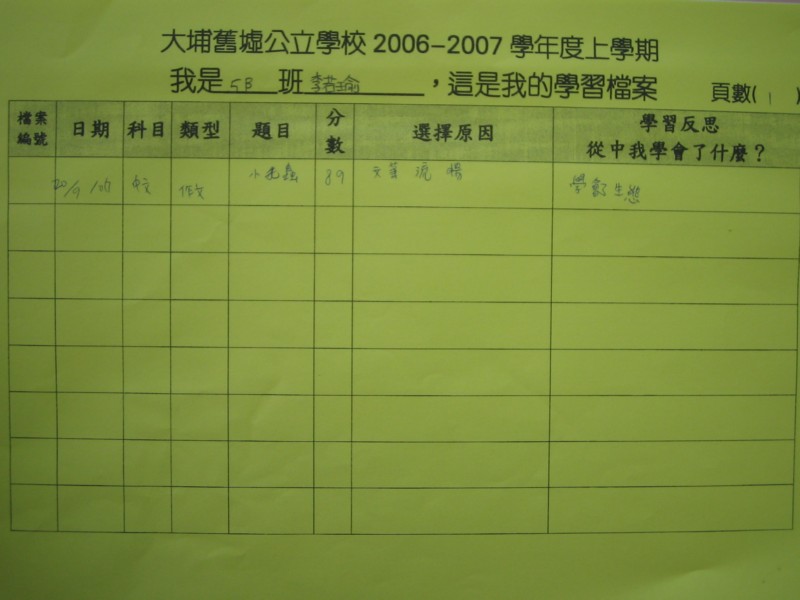 大埔舊墟公立學校 2006-2007 學年度上學期
我是 5B 班 李若瑜 ，這是我的學習檔案 頁數( 1 )
檔案編號 日期 科目 類型 題目 分數 選擇原因 學習反思 從中我學會了什麼？
20/9/06 中文 作文 小毛蟲 89 文筆流暢 學會生態